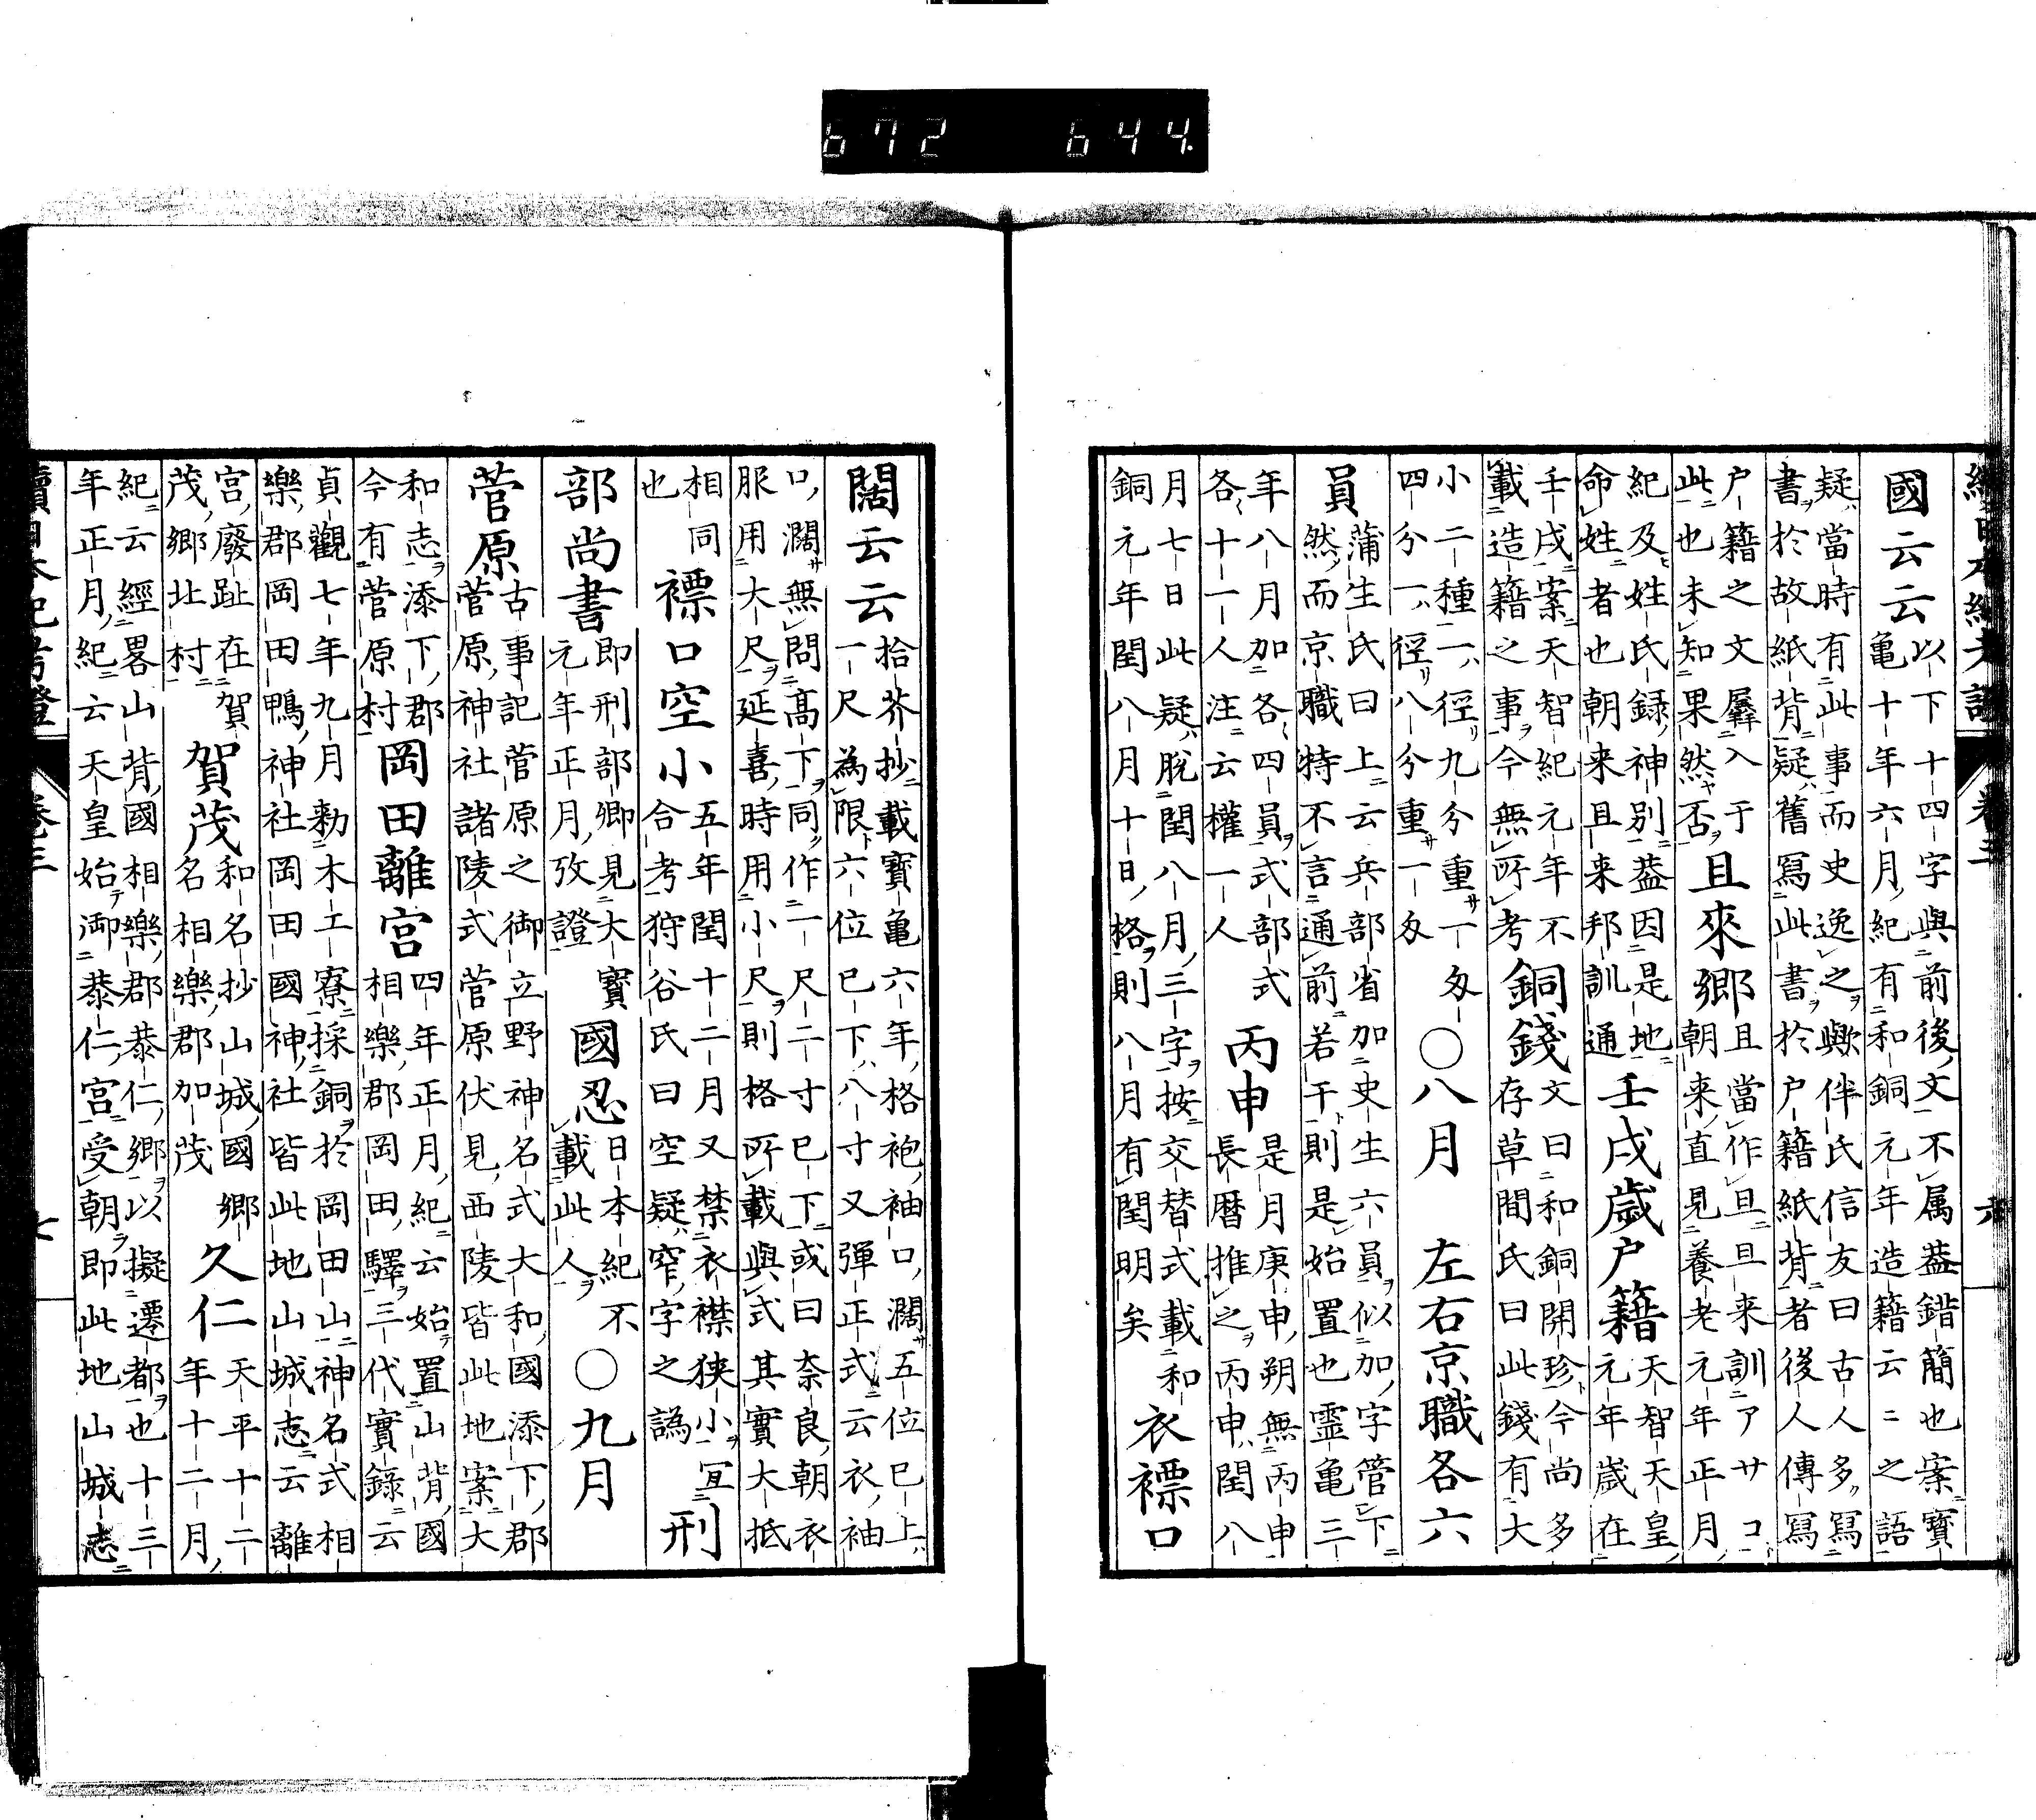 續日本紀考證 卷三 六
國云云
以下十四字與前後文不属蓋錯簡也案寶
亀十年六月紀有和銅元年造籍云ニ之語
疑當時有此事而史逸之歟伴氏信友曰古人多寫
書於故紙背疑舊寫此書於户籍紙背者後人傳寫
户籍之文羼入于
此也未知果然否
且來郷
且當作旦旦来訓アサコ
朝来直見養老元年正月
紀及姓氏録神别蓋因是地
命姓者也朝来且来邦訓通
壬戌歳户籍
天智天皇
元年歳在
壬戌案天智紀元年不
載造籍之事今無所考
銅錢
文曰和銅開珍今尚多
存草間氏曰此錢有大
小二種一徑九分重一匁
四分一徑八分重一匁
○八月 左右京職各六
員
蒲生氏曰上云兵部省加史生六員似加字管下
然而京職特不言通前若干則是始置也霊亀三
年八月加各四員式部式
各十一人注云權一人
丙申
是月庚申朔無丙申
長暦推之丙申閏八
月七日此疑脱閏八月三字按交替式載和
銅元年閏八月十日格則八月有閏明矣
衣褾口
闊云云
拾芥抄載寶亀六年格袍袖口濶五位已上
一尺為限六位已下八寸又彈正式云衣袖
口濶無問高下同作一尺二寸已下或曰奈良朝衣
服用大尺延喜時用小尺則格所載與式其實大抵
相同
也
褾口空小
五年閏十二月又禁衣襟狭小冝
合考狩谷氏曰空疑窄字之譌
刑
部尚書
即刑部卿見大寳
元年正月攷證
國忍
日本紀不
載此人
○九月
菅原
古事記菅原之御立野神名式大和國添下郡
菅原神社諸陵式菅原伏見西陵皆此地案大
和志添下郡
今有菅原村
岡田離宮
四年正月紀云始置山背國
相樂郡岡田驛三代實錄云
貞觀七年九月勅木工寮採銅於岡田山神名式相
樂郡岡田鴨神社岡田國神社皆此地山城志云離
宮廢趾在賀
茂郷北村
賀茂
和名抄山城國
名相樂郡加茂
郷
久仁
天平十二
年十二月
紀云經畧山背國相樂郡恭仁郷以擬遷都也十三
年正月紀云天皇始御恭仁宮受朝即此地山城志
續日本紀考證 卷三 七
672 644